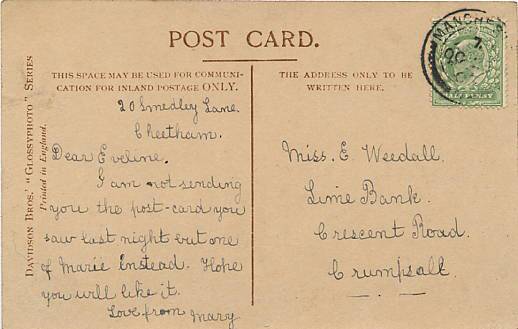 POST CARD.
THIS SPACE MAY BE USED FOR COMMUNI-
CATION FOR INLAND POSTAGE ONLY.
THE ADDRESS ONLY TO BE
WRITTEN HERE.
DAVIDSON BROS.' "GLOSSYPHOTO" SERIES
Printed in England.
20 Smedley Lane.
Cheetham.
Dear Eveline.
I am not sending
you the post-card you
saw last night but one
of Marie Enstead. Hope
you will like it.
Love from Mary
Miss. E. Weedall.
Lime Bank.
Crescent Road.
Crumpsall.
MANCHES
7.
HALFPENNY